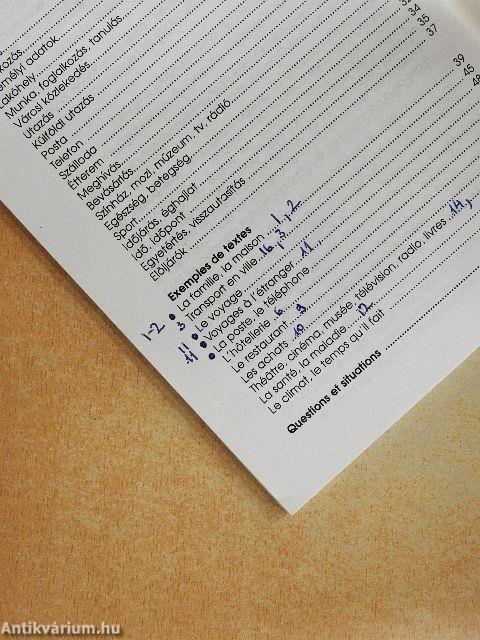 34
35
37
emélyi adatok
Lakóhely
Munka, foglalkozás, tanulás
Városi közlekedés
Utazás
Külföldi utazás
Posta
Telefon
Szálloda
Étterem
Meghívás
Bevásárlás
Színház, mozi, múzeum, tv, rádió
Egészség, betegség
Sport
Időjárás, éghajlat
Idő, időpont
Egyetértés, visszautasítás
Elöljárók
39
45
Exemples de textes
1-2 • La famille, la maison 1, 2
3 Transport en ville 16, 3
11 • Le voyage
• Voyages à l'étranger 11
• La poste, le téléphone
L'hôtellerie
Le restaurant 9
Les achats 10
Théâtre, cinéma, musée, télévision, radio, livres 14,
La santé, la maladie 12
Le climat, le temps qu'il fait
Questions et situations
Antikvárium.hu